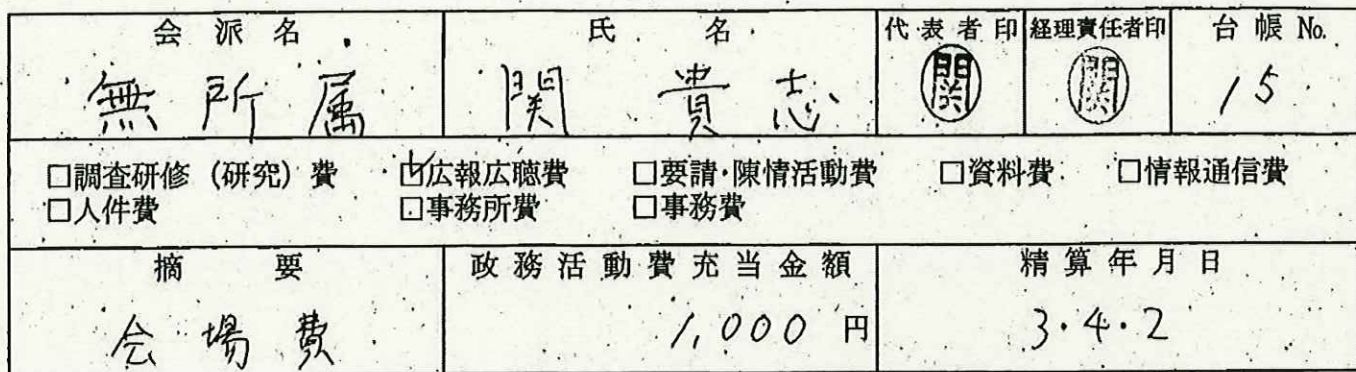 会派名 氏名 代表者印 経理責任者印 台帳No.
無所属 関貴志 関 関 15
□調査研修（研究）費 ☑広報広聴費 □要請・陳情活動費 □資料費 □情報通信費
□人件費 □事務所費 □事務費
摘要 政務活動費充当金額 精算年月日
会場費 1,000円 3・4・2